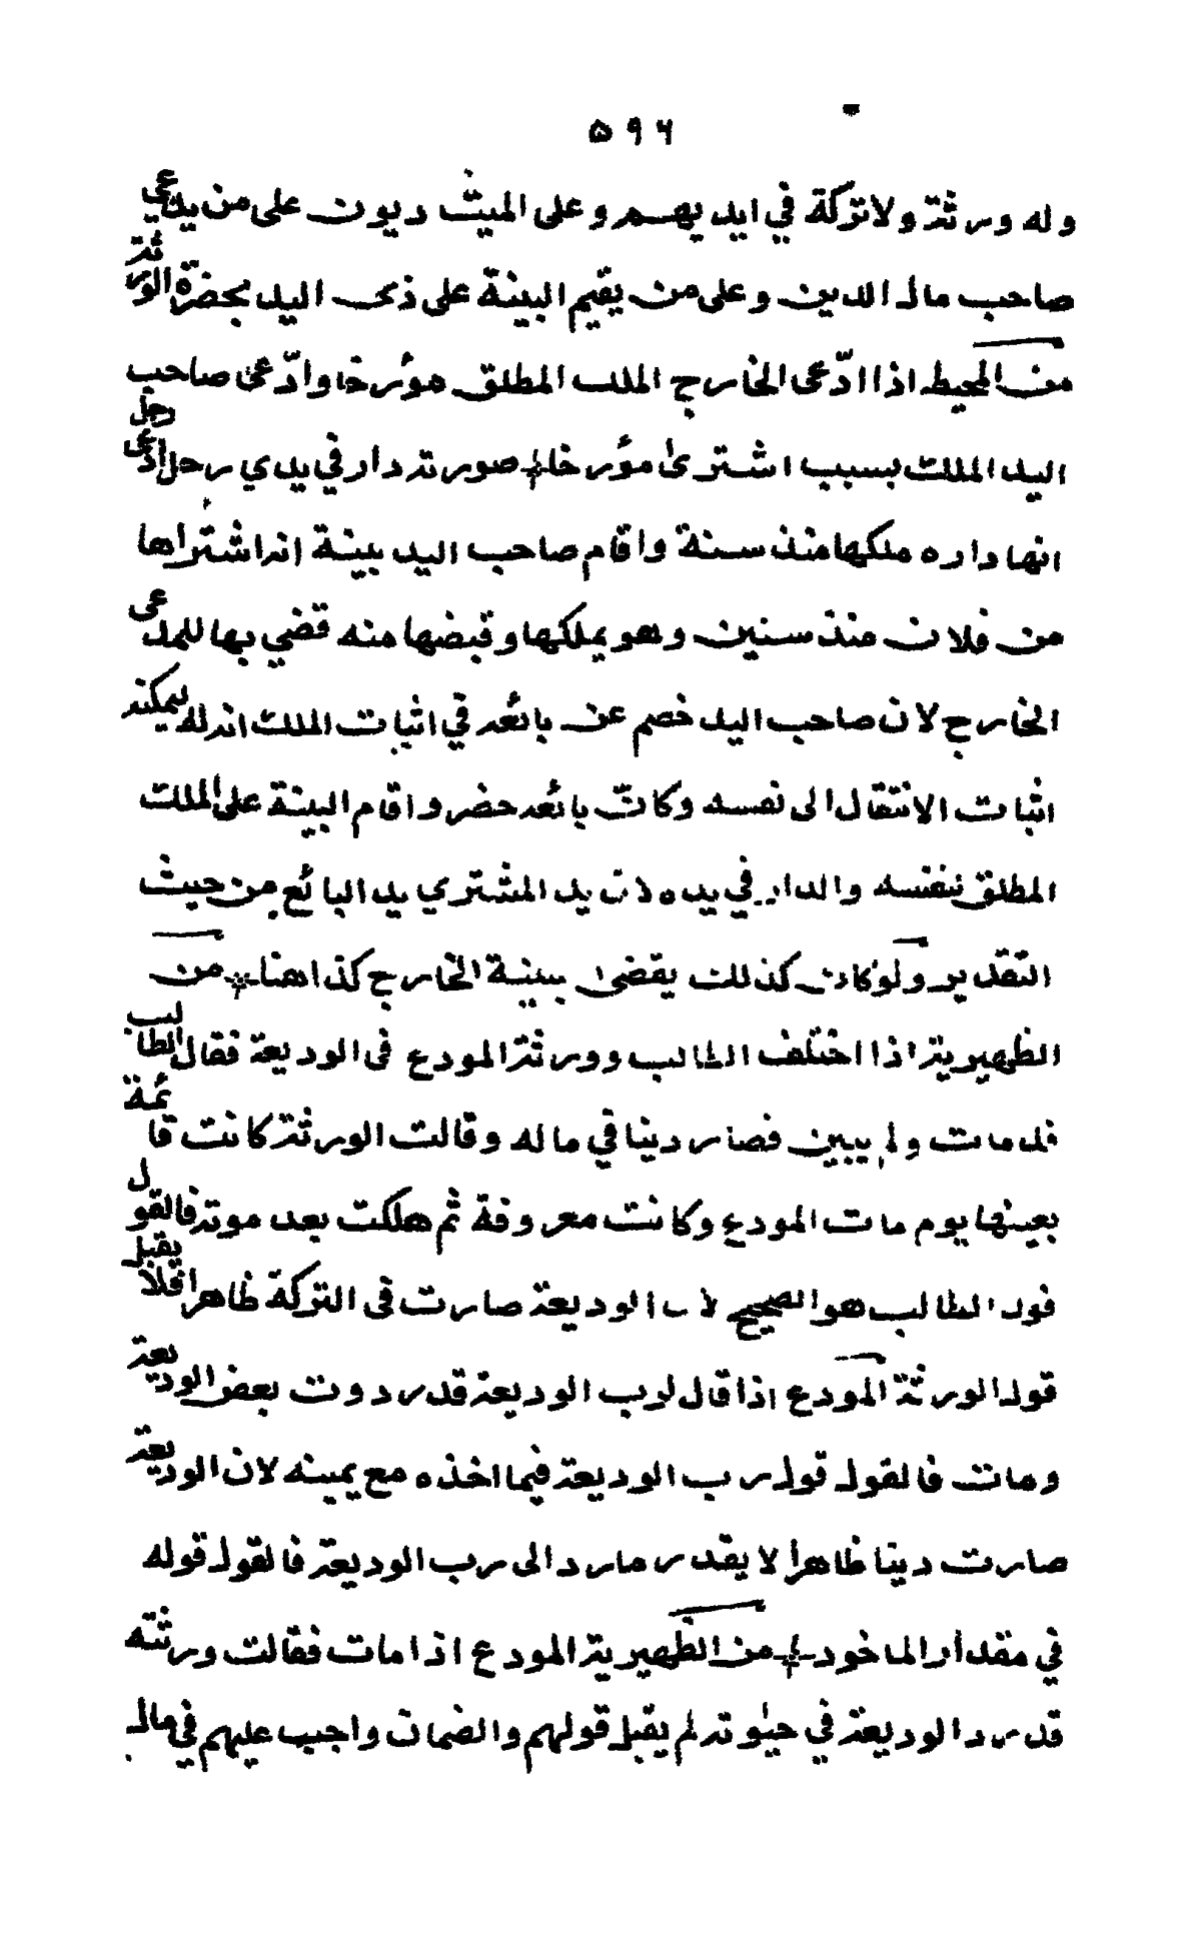 ٥٩٦
وله ورثة ولا تركة في ايديهم وعلى الميت ديون على من يدعي
صاحب مال الدين وعلى من يقيم البينة على ذى اليد بحضرة الورثة
من المحيط اذا ادّعى الخارج الملك المطلق مؤرخا وادّعى صاحب
اليد الملك بسبب اشترى مؤرخا صورته دار في يدي رجل ادعى رجل
انها داره ملكها منذ سنة واقام صاحب اليد بينة انه اشتراها
من فلان منذ سنين وهو يملكها وقبضها منه قضي بها للمدعى
الخارج لان صاحب اليد خصم عن بائعه في اثبات الملك انه له ليمكنه
اثبات الانتقال الى نفسه وكان بائعه حضر واقام البينة على الملك
المطلق لنفسه والدار في يده لان يد المشتري يد البائع من حيث
التقدير ولو كان كذلك يقضى ببينة الخارج كذا هنا من
الظهيرية اذا اختلف الطالب وورثة المودع فى الوديعة فقال الطالب
قد مات ولم يبين فصار دينا في ماله وقالت الورثة كانت قائمة
بعينها يوم مات المودع وكانت معروفة ثم هلكت بعد موته فالقول
قول الطالب هو الصحيح لان الوديعة صارت فى التركة ظاهرا فلا يقبل
قول الورثة المودع اذا قال لرب الوديعة قد رددت بعض الوديعة
ومات فالقول قول رب الوديعة فيما اخذه مع يمينه لان الوديعة
صارت دينا ظاهرا لا بقدر ما رد الى رب الوديعة فالقول قوله
في مقدار الماخود من الظهيرية المودع اذا مات فقالت ورثته
قد رد الوديعة في حيوته لم يقبل قولهم والضمان واجب عليهم في مال